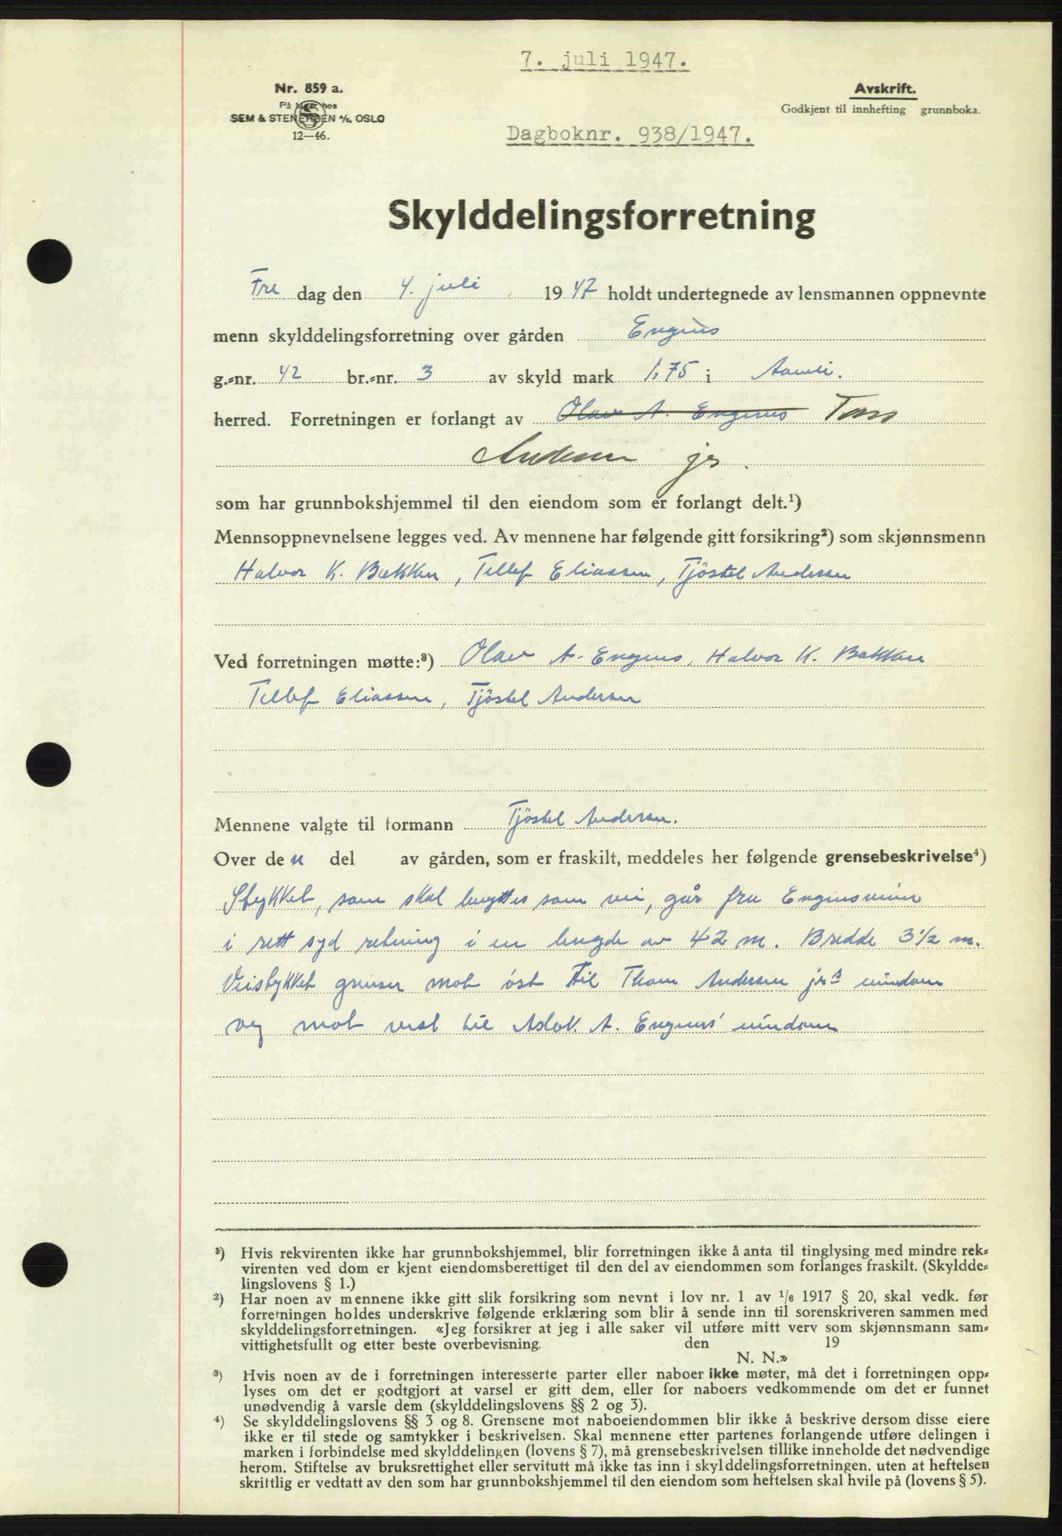 7. juli 1947.
Nr. 859 a.
På lager hos
SEM & STENERSEN A/S, OSLO
12—46.
Avskrift.
Godkjent til innhefting grunnboka.
Dagboknr. 938/1947.
Skylddelingsforretning
Fre dag den 4. juli 1947 holdt undertegnede av lensmannen oppnevnte
menn skylddelingsforretning over gården Engenes
g.-nr. 42 br.-nr. 3 av skyld mark 1,75 i Aamli.
herred. Forretningen er forlangt av Olav A. Engenes Tom
Andersen jr.
som har grunnbokshjemmel til den eiendom som er forlangt delt.¹)
Mennsoppnevnelsene legges ved. Av mennene har følgende gitt forsikring²) som skjønnsmenn
Halvor K. Bakken, Tellef Eliassen, Tjöstel Andersen
Ved forretningen møtte:³) Olav A. Engenes, Halvor K. Bakken
Tellef Eliassen, Tjöstel Andersen
Mennene valgte til formann Tjöstel Andersen.
Over den del av gården, som er fraskilt, meddeles her følgende grensebeskrivelse⁴)
Stykket, som skal benyttes som vei, går fra Engenesveien
i rett syd retning i en lengde av 42 m. Bredde 3½ m.
Veistykket grenser mot øst til Thom Andersen jrs eiendom
og mot vest til Aslak A. Engenes' eiendom
¹) Hvis rekvirenten ikke har grunnbokshjemmel, blir forretningen ikke å anta til tinglysing med mindre rek-
virenten ved dom er kjent eiendomsberettiget til den del av eiendommen som forlanges fraskilt. (Skyldde-
lingslovens § 1.)
²) Har noen av mennene ikke gitt slik forsikring som nevnt i lov nr. 1 av 1/6 1917 § 20, skal vedk. før
forretningen holdes underskrive følgende erklæring som blir å sende inn til sorenskriveren sammen med
skylddelingsforretningen. «Jeg forsikrer at jeg i alle saker vil utføre mitt verv som skjønnsmann sam-
vittighetsfullt og etter beste overbevisning. den 19
N. N.»
³) Hvis noen av de i forretningen interesserte parter eller naboer ikke møter, må det i forretningen opp-
lyses om det er godtgjort at varsel er gitt dem, eller for naboers vedkommende om det er funnet
unødvendig å varsle dem (skylddelingslovens §§ 2 og 3).
⁴) Se skylddelingslovens §§ 3 og 8. Grensene mot naboeiendommen blir ikke å beskrive dersom disse eiere
ikke er til stede og samtykker i beskrivelsen. Skal mennene etter partenes forlangende utføre delingen i
marken i forbindelse med skylddelingen (lovens § 7), må grensebeskrivelsen tillike inneholde det nødvendige
herom. Stiftelse av bruksrettighet eller servitutt må ikke tas inn i skylddelingsforretningen, uten at heftelsen
skriftlig er vedtatt av den som har grunnbokshjemmel til den eiendom som heftelsen skal hvile på (lovens § 5).